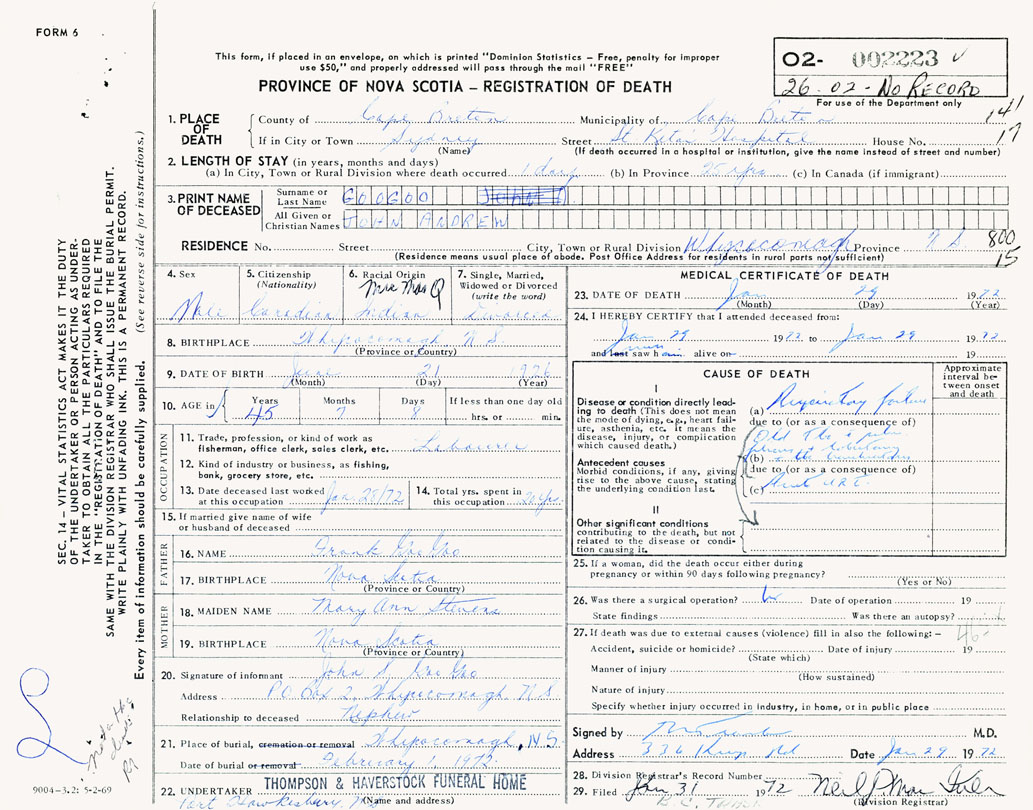 FORM 6
This form, if placed in an envelope, on which is printed "Dominion Statistics – Free, penalty for improper
use $50," and properly addressed will pass through the mail "FREE"
PROVINCE OF NOVA SCOTIA – REGISTRATION OF DEATH
02- 002223
26. 02 - NO RECORD
For use of the Department only
141
17
1. PLACE OF DEATH
County of Cape Breton Municipality of Cape Breton
If in City or Town Sydney Street St Rita's Hospital House No.
(Name) (If death occurred in a hospital or institution, give the name instead of street and number)
2. LENGTH OF STAY (in years, months and days)
(a) In City, Town or Rural Division where death occurred 1 day (b) In Province yrs (c) In Canada (if immigrant)
3. PRINT NAME OF DECEASED
Surname or Last Name GOOGOO
All Given or Christian Names JOHN ANDREW
RESIDENCE No. Street City, Town or Rural Division Whycocomagh Province N S
800
15
(Residence means usual place of abode. Post Office Address for residents in rural parts not sufficient)
4. Sex
Male
5. Citizenship
(Nationality)
Canadian
6. Racial Origin
Indian
7. Single, Married,
Widowed or Divorced
(write the word)
Divorced
8. BIRTHPLACE Whycocomagh N S
(Province or Country)
9. DATE OF BIRTH June 21 1926
(Month) (Day) (Year)
10. AGE in
Years Months Days If less than one day old
45 7 8 hrs. or min.
OCCUPATION
11. Trade, profession, or kind of work as
fisherman, office clerk, sales clerk, etc. Labourer
12. Kind of industry or business, as fishing,
bank, grocery store, etc.
13. Date deceased last worked
at this occupation Jan 28/72
14. Total yrs. spent in
this occupation yrs.
15. If married give name of wife
or husband of deceased
FATHER
16. NAME Frank Goo Goo
17. BIRTHPLACE Nova Scotia
(Province or Country)
MOTHER
18. MAIDEN NAME Mary Ann Stevens
19. BIRTHPLACE Nova Scotia
(Province or Country)
20. Signature of informant John S. Goo Goo
Address P.O. Box 2, Whycocomagh N S
Relationship to deceased Nephew
21. Place of burial, cremation or removal Whycocomagh, N S
Date of burial or removal February 1, 1972
22. UNDERTAKER THOMPSON & HAVERSTOCK FUNERAL HOME
Port Hawkesbury, N S
(Name and address)
MEDICAL CERTIFICATE OF DEATH
23. DATE OF DEATH Jan 29 1972
(Month) (Day) (Year)
24. I HEREBY CERTIFY that I attended deceased from:
Jan 29 1972 to Jan 29 1972
and last saw h alive on 19
CAUSE OF DEATH
Approximate
interval be-
tween onset
and death
I
Disease or condition directly lead-
ing to death (This does not mean
the mode of dying, e.g., heart fail-
ure, asthenia, etc. it means the
disease, injury, or complication
which caused death.)
(a) Respiratory failure
due to (or as a consequence of)
Antecedent causes
Morbid conditions, if any, giving
rise to the above cause, stating
the underlying condition last.
(b)
due to (or as a consequence of)
(c)
II
Other significant conditions
contributing to the death, but not
related to the disease or condi-
tion causing it.
25. If a woman, did the death occur either during
pregnancy or within 90 days following pregnancy?
(Yes or No)
26. Was there a surgical operation? Date of operation 19
State findings Was there an autopsy?
27. If death was due to external causes (violence) fill in also the following: –
Accident, suicide or homicide? Date of injury 19
(State which)
Manner of injury
(How sustained)
Nature of injury
Specify whether injury occurred in industry, in home, or in public place
Signed by M.D.
Address 336 Kings Rd Date Jan 29 1972
28. Division Registrar's Record Number
29. Filed Jan 31 1972 Neil J Mac
(Division Registrar)
SEC. 14 – VITAL STATISTICS ACT MAKES IT THE DUTY
OF THE UNDERTAKER OR PERSON ACTING AS UNDER-
TAKER TO OBTAIN ALL THE PARTICULARS REQUIRED
IN THE "REGISTRATION OF DEATH" AND TO FILE THE
SAME WITH THE DIVISION REGISTRAR WHO SHALL ISSUE THE BURIAL PERMIT.
WRITE PLAINLY WITH UNFADING INK. THIS IS A PERMANENT RECORD.
Every item of information should be carefully supplied. (See reverse side for instructions.)
9004-3.2: 5-2-69